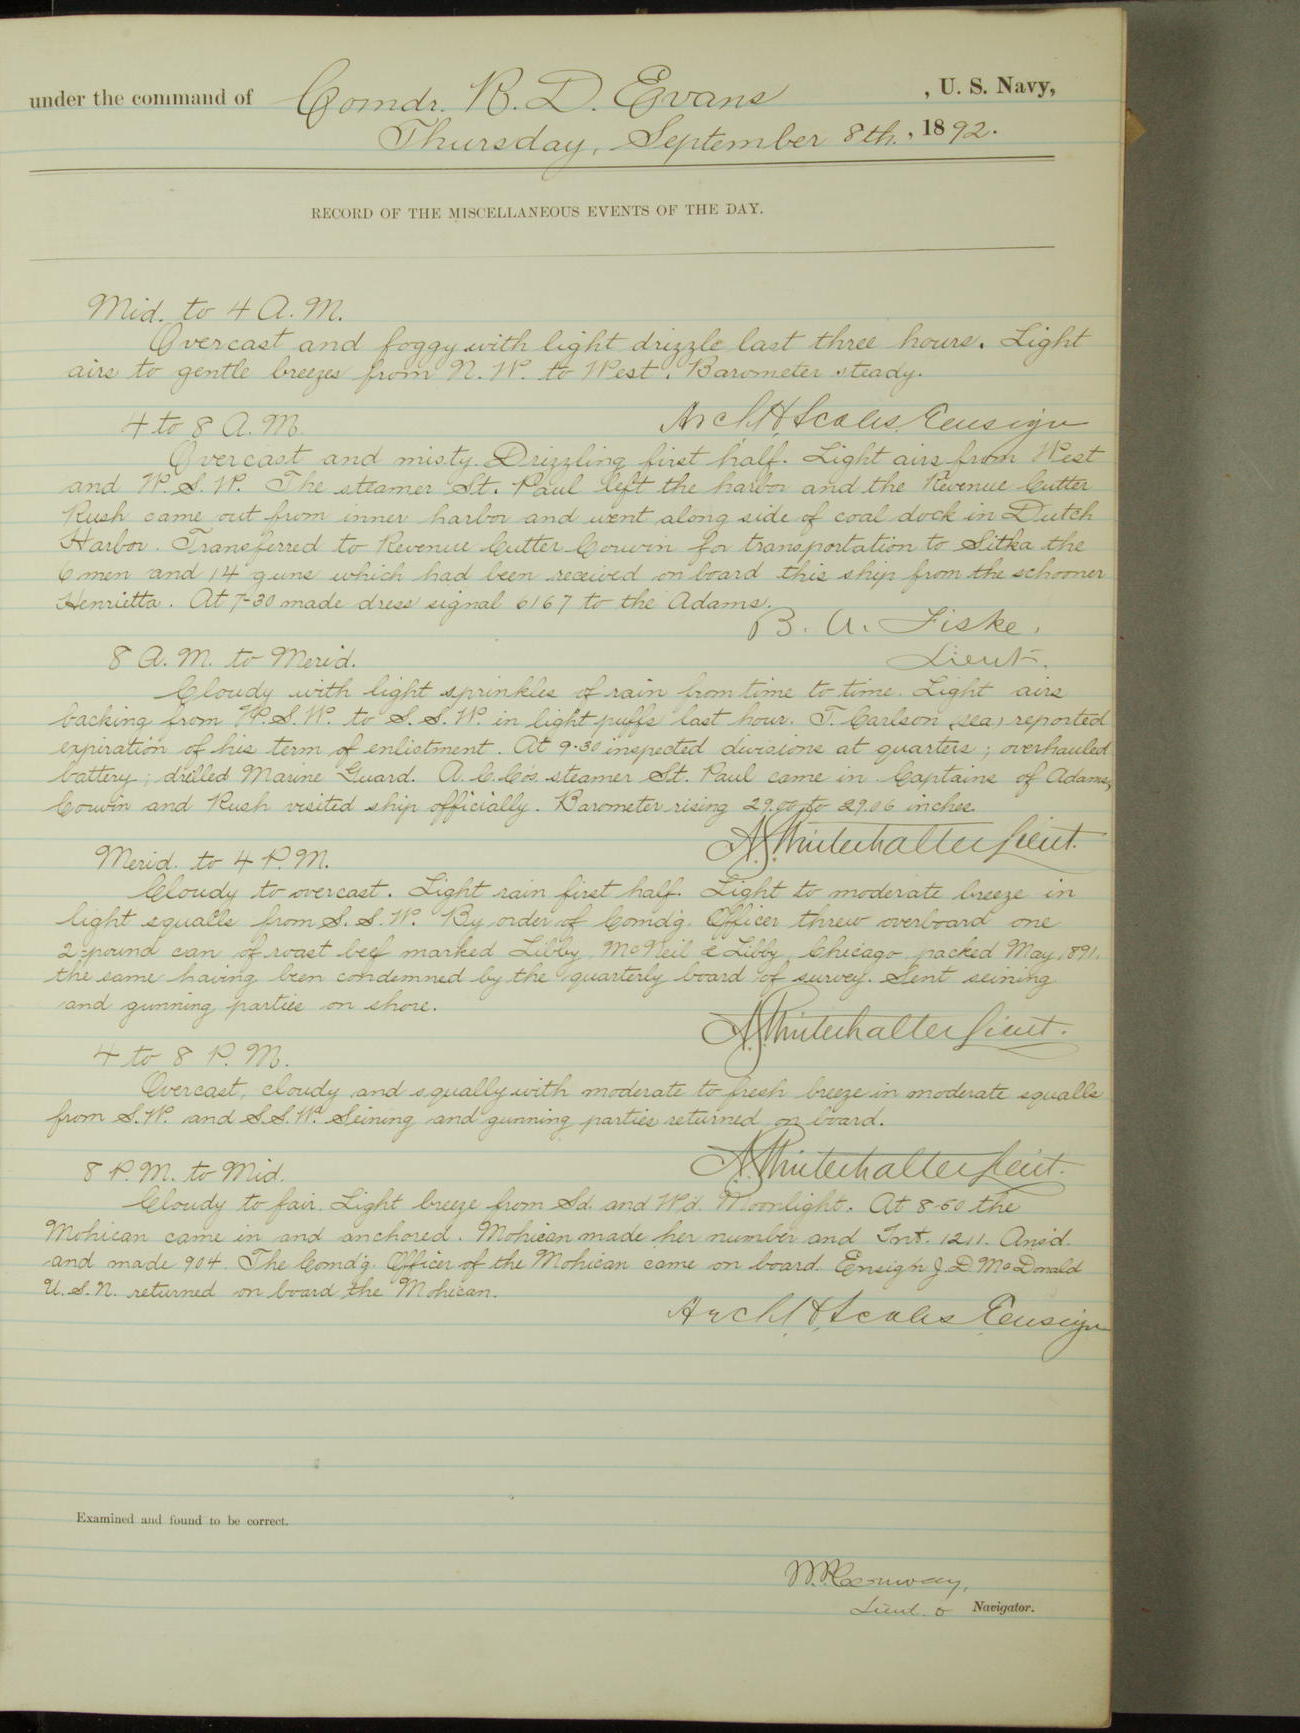 under the command of Comdr. R. D. Evans, U. S. Navy,
Thursday, September 8th., 1892.
RECORD OF THE MISCELLANEOUS EVENTS OF THE DAY.
Mid. to 4 A. M.
Overcast and foggy with light drizzle last three hours. Light
airs to gentle breezes from N. W. to West. Barometer steady.
Arch. H. Scales, Ensign
4 to 8 A. M.
Overcast and misty. Drizzling first half. Light airs from West
and W. S. W. The steamer St. Paul left the harbor and the Revenue Cutter
Rush came out from inner harbor and went along side of coal dock in Dutch
Harbor. Transferred to Revenue Cutter Corwin for transportation to Sitka the
6 men and 14 guns which had been received on board this ship from the schooner
Henrietta. At 7-30 made dress signal 6167 to the Adams.
B. A. Fiske,
Lieut.
8 A. M. to Merid.
Cloudy with light sprinkles of rain from time to time. Light airs
backing from W. S. W. to S. S. W. in light puffs last hour. T. Carlson (sea) reported
expiration of his term of enlistment. At 9-30 inspected divisions at quarters; overhauled
battery; drilled Marine Guard. A. C. Co's. steamer St. Paul came in. Captains of Adams,
Corwin and Rush visited ship officially. Barometer rising 29.00 to 29.06 inches.
A. G. Winterhalter Lieut.
Merid. to 4 P. M.
Cloudy to overcast. Light rain first half. Light to moderate breeze in
light squalls from S. S. W. By order of Comd'g. Officer threw overboard one
2-pound can of roast beef marked Libby, McNeil & Libby, Chicago packed May, 1891.
the same having been condemned by the quarterly board of survey. Sent seining
and gunning parties on shore.
A. G. Winterhalter Lieut.
4 to 8 P. M.
Overcast, cloudy and squally with moderate to fresh breeze in moderate squalls
from S. W. and S. S. Wd. Seining and gunning parties returned on board.
A. G. Winterhalter Lieut.
8 P. M. to Mid.
Cloudy to fair. Light breeze from Sd. and Wd. Moonlight. At 8-50 the
Mohican came in and anchored. Mohican made her number and Int. 1211. Ans'd.
and made 904. The Comd'g. Officer of the Mohican came on board. Ensign J. D. McDonald
U. S. N. returned on board the Mohican.
Arch. H. Scales Ensign
Examined and found to be correct.
Conway,
Lieut. & Navigator.